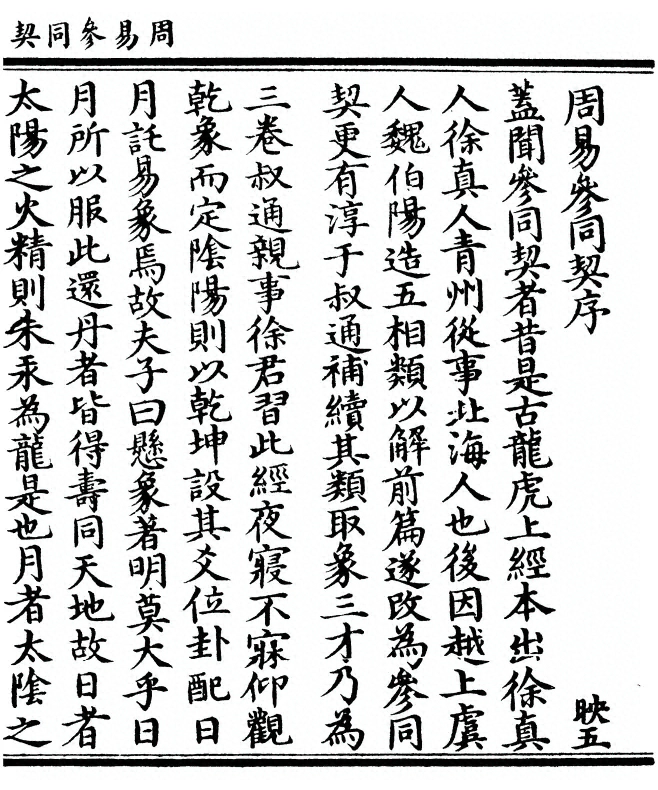 周易參同契
周易參同契序
映五
蓋聞參同契者昔是古龍虎上經本出徐真
人徐真人青州從事北海人也後因越上虞
人魏伯陽造五相類以解前篇遂改為參同
契更有淳于叔通補續其類取象三才乃為
三卷叔通親事徐君習此經夜寢不寐仰觀
乾象而定陰陽則以乾坤設其爻位卦配日
月託易象焉故夫子曰懸象著明莫大乎日
月所以服此還丹者皆得壽同天地故日者
太陽之火精則朱汞為龍是也月者太陰之